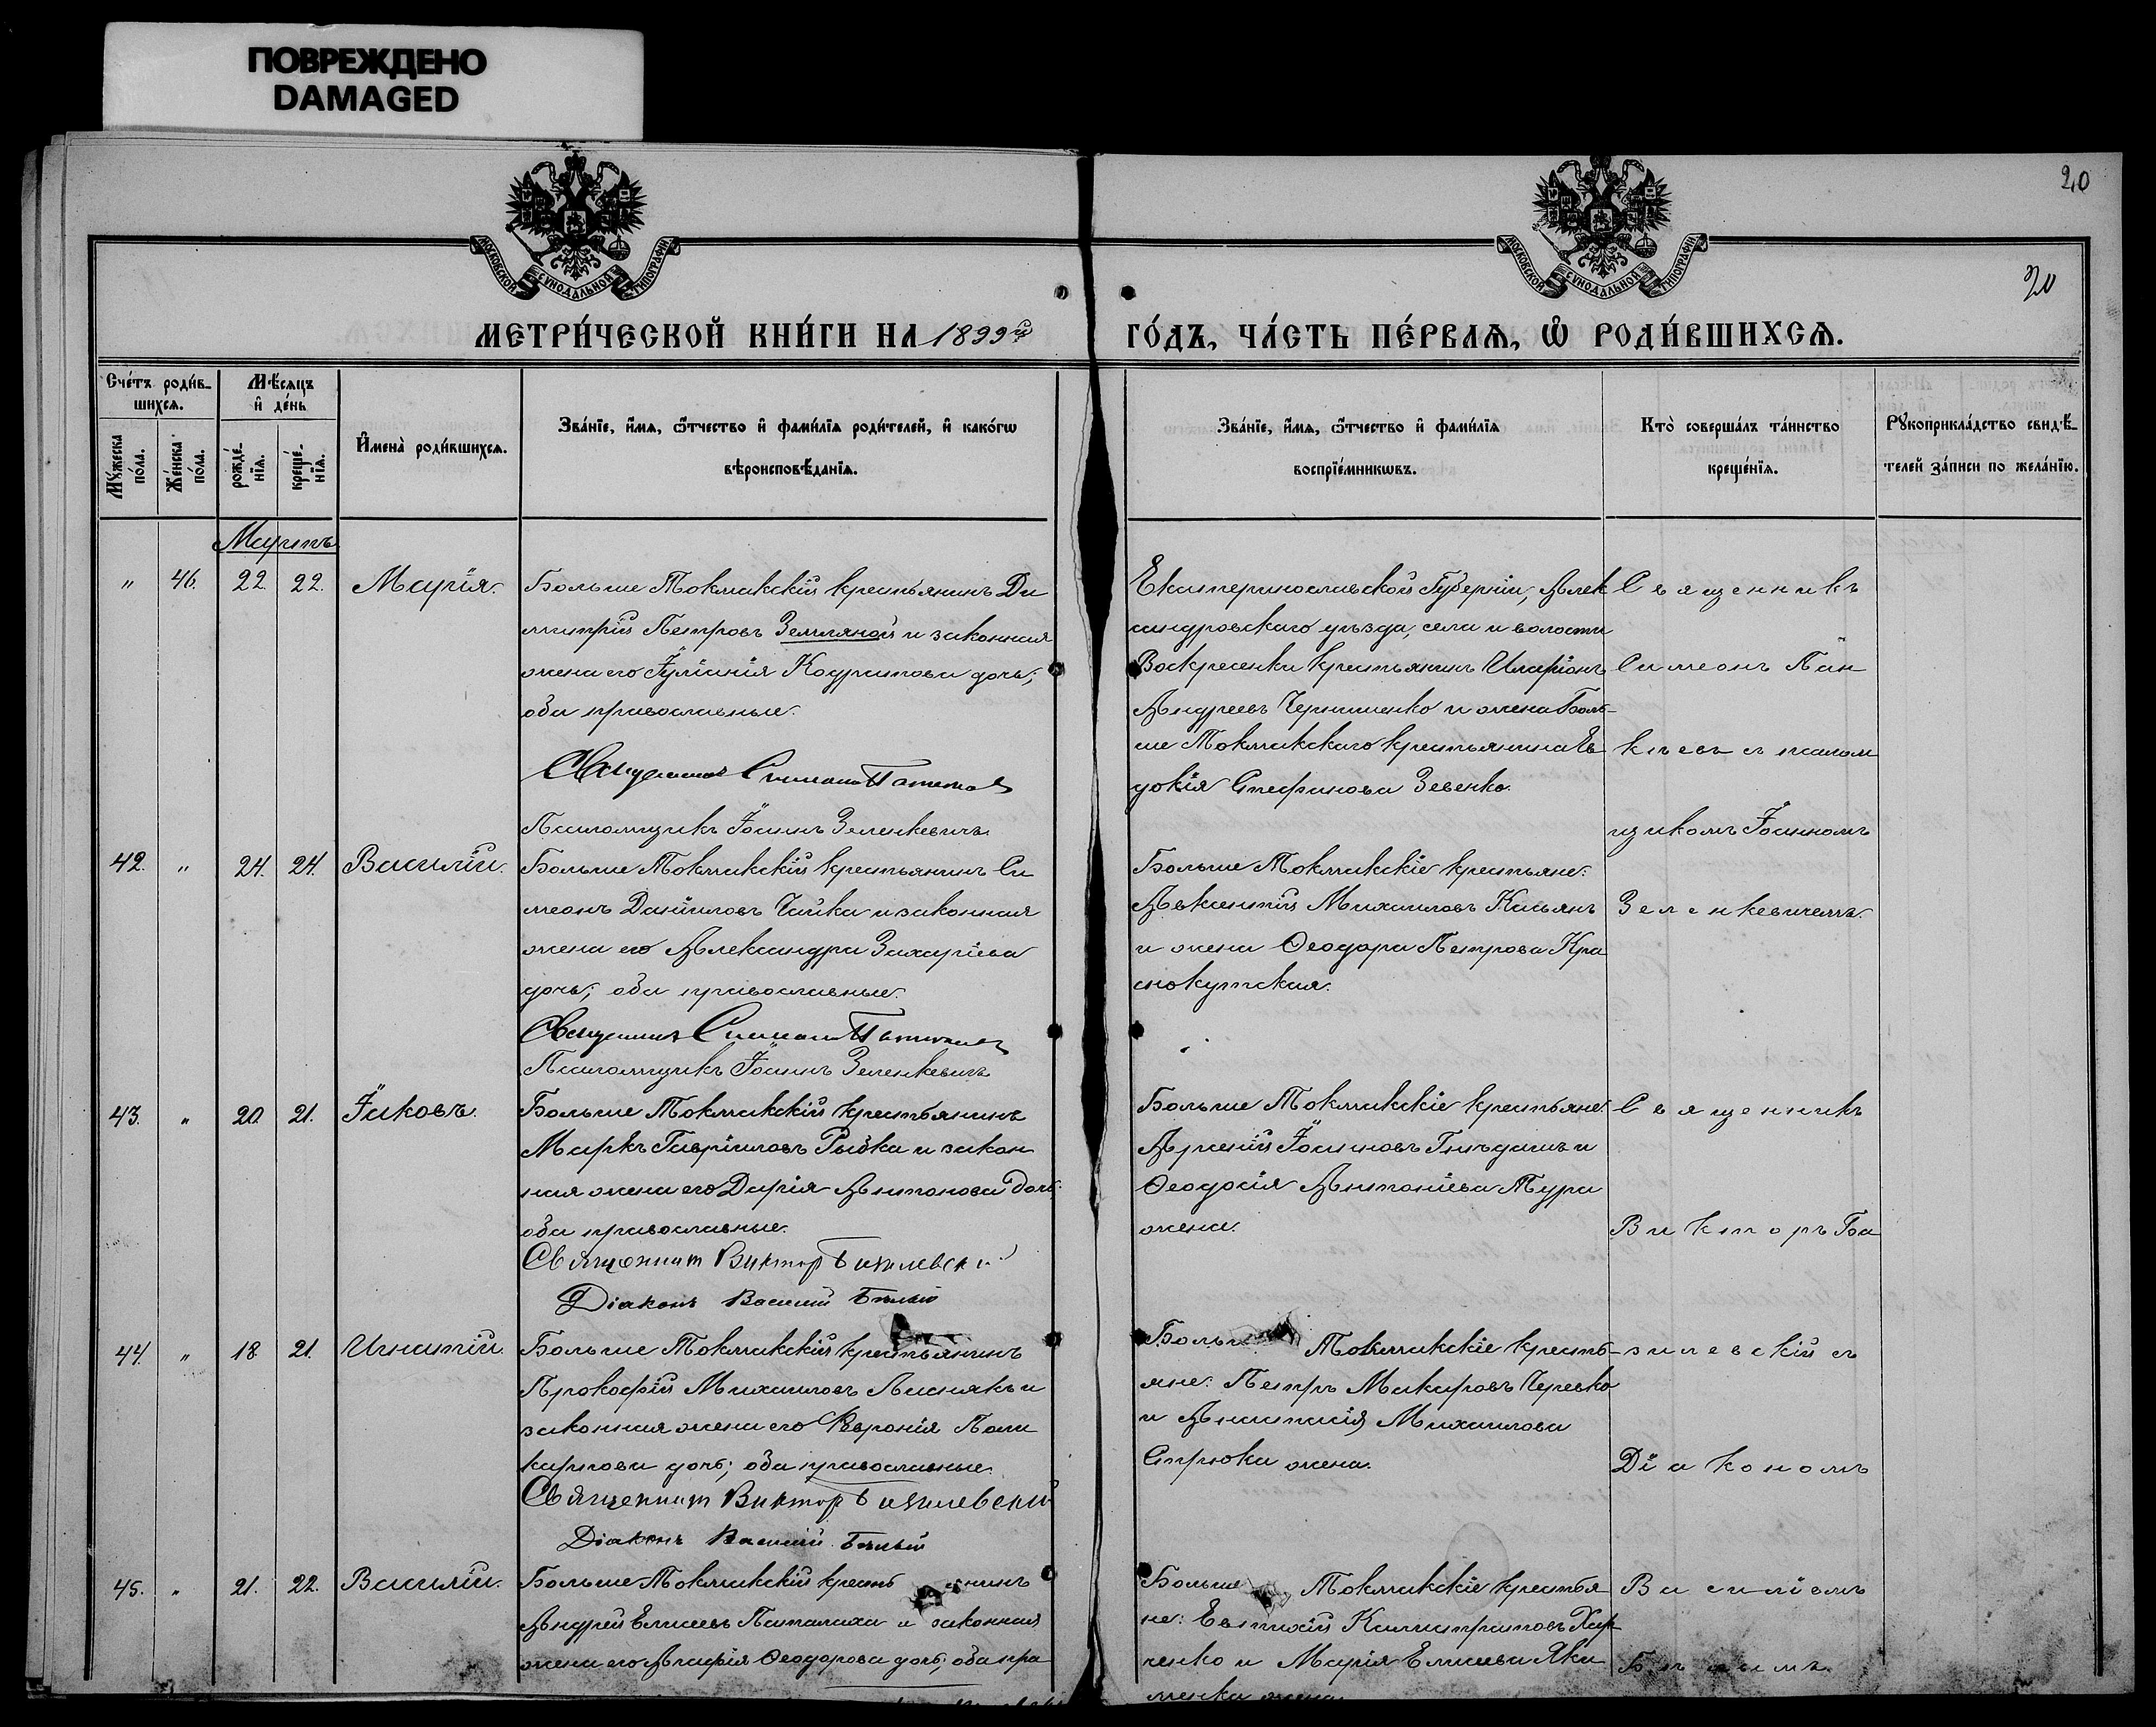 ПОВРЕЖДЕНО
DAMAGED
20
МОСКОВСКОЙ СѴНОДАЛЬНОЙ ТИПОГРАФІИ
МОСКОВСКОЙ СѴНОДАЛЬНОЙ ТИПОГРАФІИ
20
МЕТРИ́ЧЕСКОЙ КНИ́ГИ НА 1899й ГО́ДЪ, ЧА́СТЬ ПЕ́РВАѦ, Ѡ҆ РОДИ́ВШИХСѦ.
Сче́тъ роди́в-
шихсѧ.
Мѣ́сѧцъ
и҆ де́нь
И҆мена̀ роди́вшихсѧ.
Зва́нїе, и҆́мѧ, ѻ҆́тчество и҆ фами́лїѧ роди́телей, и҆ како́гѡ
вѣроисповѣ́данїѧ.
Зва́нїе, и҆́мѧ, ѻ҆́тчество и҆ фами́лїѧ
воспрїе́мникѡвъ.
Кто̀ соверша́лъ та́инство
креще́нїѧ.
Рꙋкоприкла́дство свидѣ́-
телей за́писи по жела́нїю.
Мꙋ́жеска
по́ла.
Же́нска
по́ла.
рожде́-
нїѧ.
креще́-
нїѧ.
Мартъ
" 46. 22. 22. Марія.
Больше Токмакскій крестьянинъ Ди
митрій Петровъ Земляной и законная
жена его Іуліанія Кодратова дочь;
оба православные.
Священник Симеон
Псаломщикъ Іоаннъ Зеленкевичъ
Екатеринославской Губерніи, Алек
сандровскаго уѣзда, села и волости
Воскресенки крестьянинъ Иларіонъ
Андреевъ и жена Боль-
ше Токмакскаго крестьянина Ев
докія Стефанова Зевенко.
Священникъ
Симеонъ Пан
съ псалом
щикомъ Іоанномъ
Зеленкевичемъ.
42. " 24. 24. Василій.
Больше Токмакскій крестьянинъ Си
меонъ Даніиловъ Чайка и законная
жена его Александра Захаріева
дочь; оба православные.
Священник Симеон
Псаломщикъ Іоаннъ Зеленкевичъ
Больше Токмакскіе крестьяне:
Авксентій Михаиловъ Касьянъ
и жена Ѳеодора Петрова Кра
снокутская.
43. " 20. 21. Іаковъ.
Больше Токмакскій крестьянинъ
Маркъ Гавріиловъ Рыбка и закон
ная жена его Дарія Антонова дочь
оба православные.
Священник Виктор Базилевский
Діаконъ Василий Белый
Больше Токмакскіе крестьяне:
Арсеній Іоанновъ Гнѣдашъ и
Ѳеодосія Антоніева Тура
жена.
Священникъ
Викторъ Ба
зилевскій съ
Діакономъ
Василіемъ
Бѣлымъ.
44. " 18. 21. Игнатій.
Больше Токмакскій крестьянинъ
Прокофій Михаиловъ Лиснякъ и
законная жена его Ѳевронія Поли
карпова дочь; оба православные.
Священник Виктор Базилевский
Діаконъ Василий Белый
Больше Токмакскіе кресть-
яне: Петръ Макаровъ Черевко
и Анастасія Михаилова
Стрюка жена.
45. " 21. 22. Василій.
Больше Токмакскій крестьянинъ
Андрей Елисеевъ Паталаха и законная
жена его Агафія Ѳеодорова дочь; оба пра
Больше Токмакскіе крестья
не: Евтихій Калистратовъ Хар
ченко и Марія Елисеева Яки
менка жена.